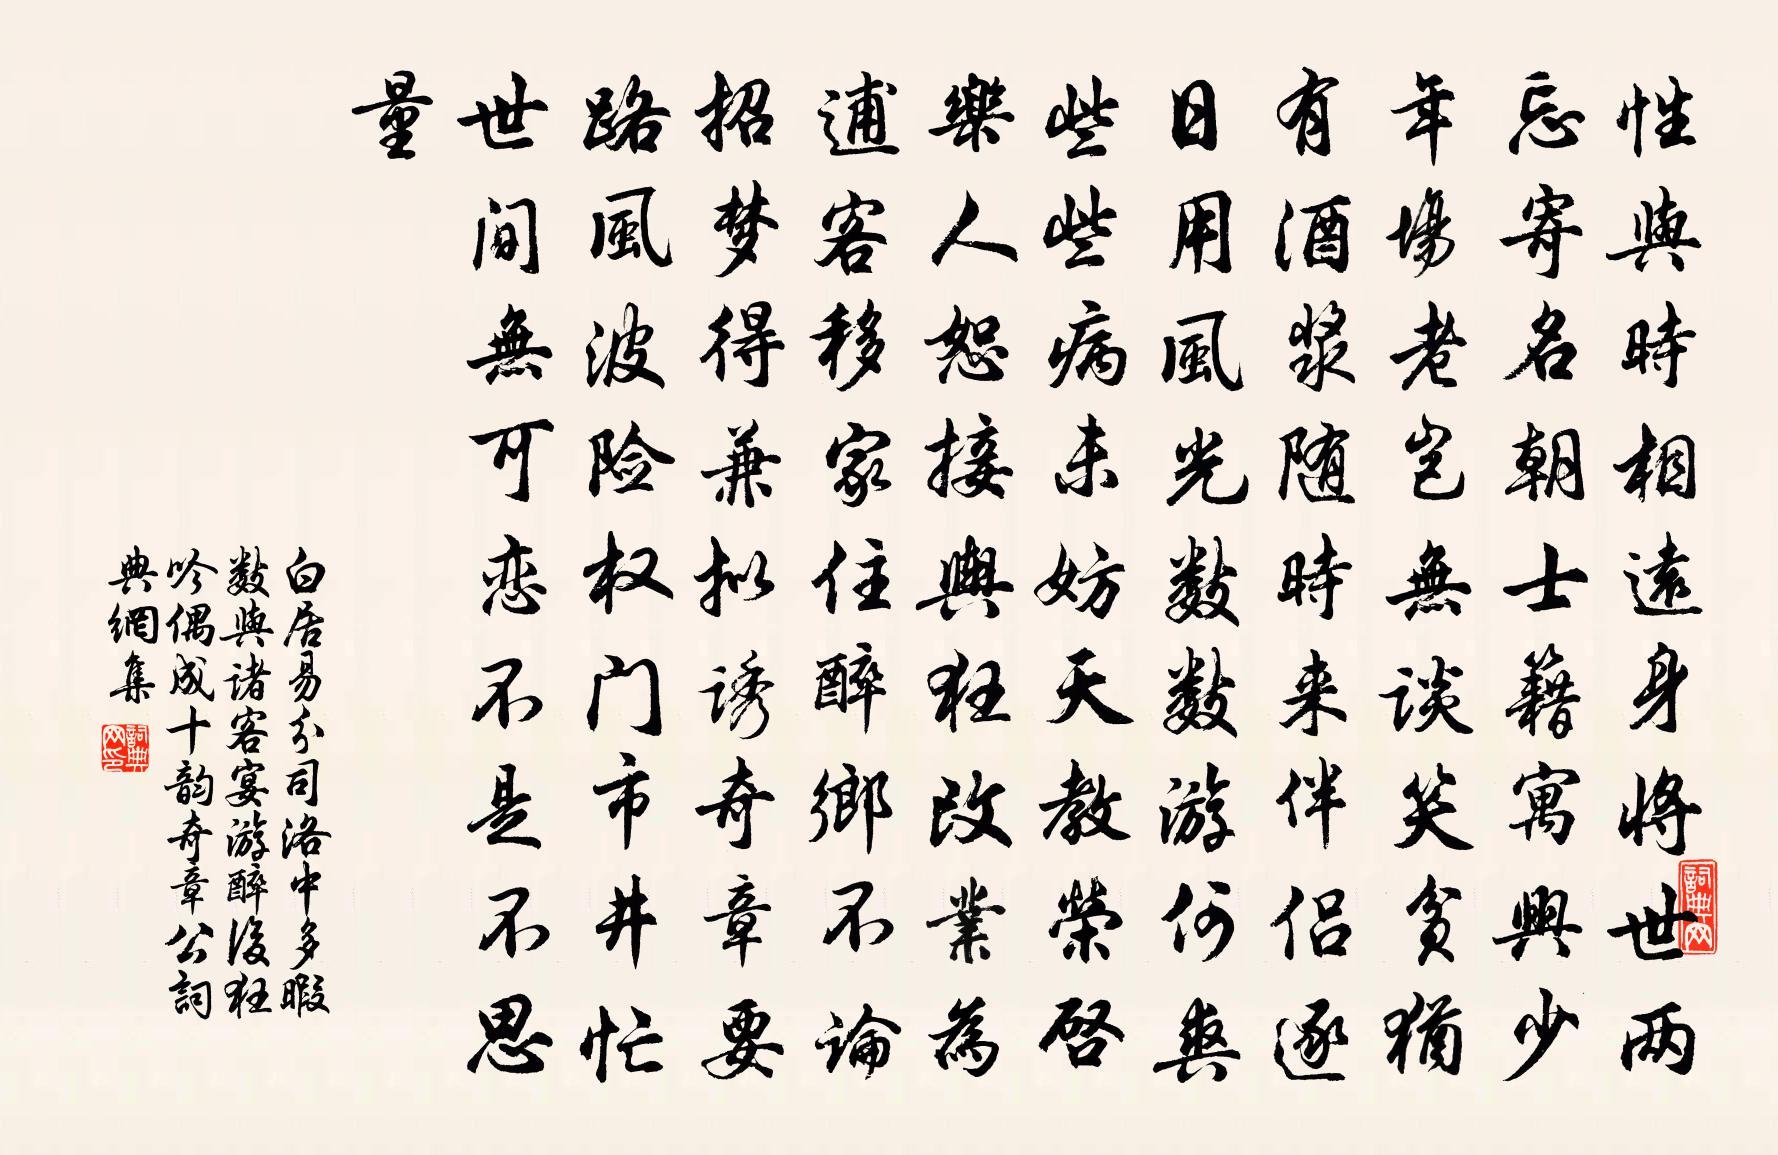 性與時相遠身將世两
忘寄名朝士籍寓興少
年場老岂無談笑貧猶
有酒漿随時来伴侣逐
日用風光數數游何爽
些些病未妨天教榮啓
樂人恕接輿狂改業為
逋客移家住醉鄉不論
招梦得兼拟誘奇章要
路風波险权门市井忙
世间無可恋不是不思
量
白居易分司洛中多暇
數與诸客宴游醉後狂
吟偶成十韵奇章公詞
典網集
詞典网
詞典网印